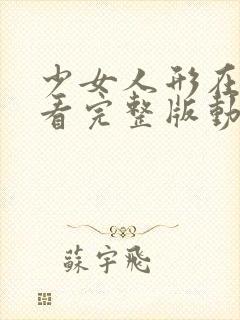 少女人形在
看完整版動
蘇宇飛